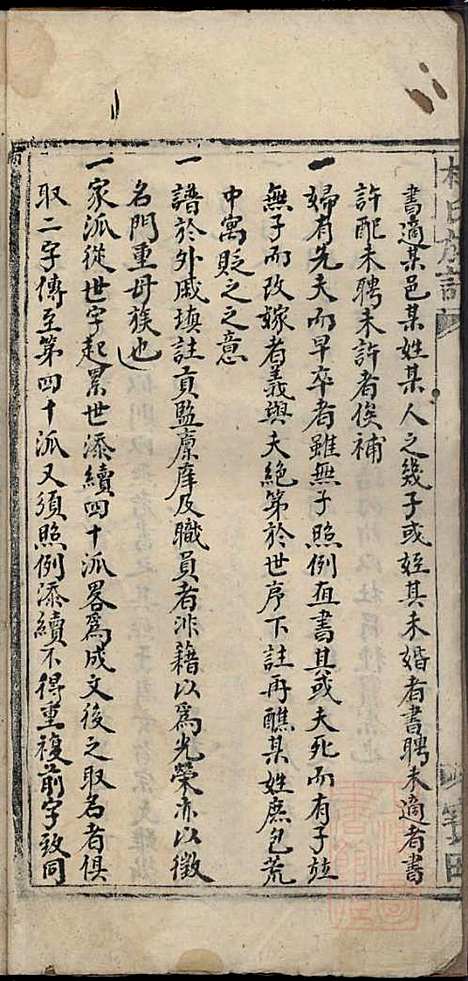 書適某邑某姓某人之幾子或姪其未婚者書聘未適者書
許配未聘未許者俟補
一婦有先夫而早卒者雖無子照例直書其或夫死而有子並
無子而改嫁者義與夫絕第於世序下註再醮某姓庶包荒
中寓貶之之意
一譜於外戚填註貢監廩庠及職員者非藉以為光榮亦以徵
名門重母族也
一家派從世字起累世添續四十派畧為成文後之取名者俱
取二字傳至第四十派又須照例添續不得重複前字致同